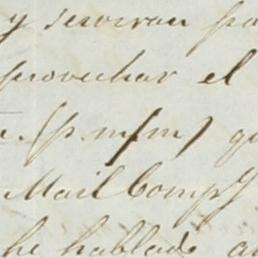 y serviran pa
provechar el
e. (p. m/m) qu
Mail Compy
he hablado a